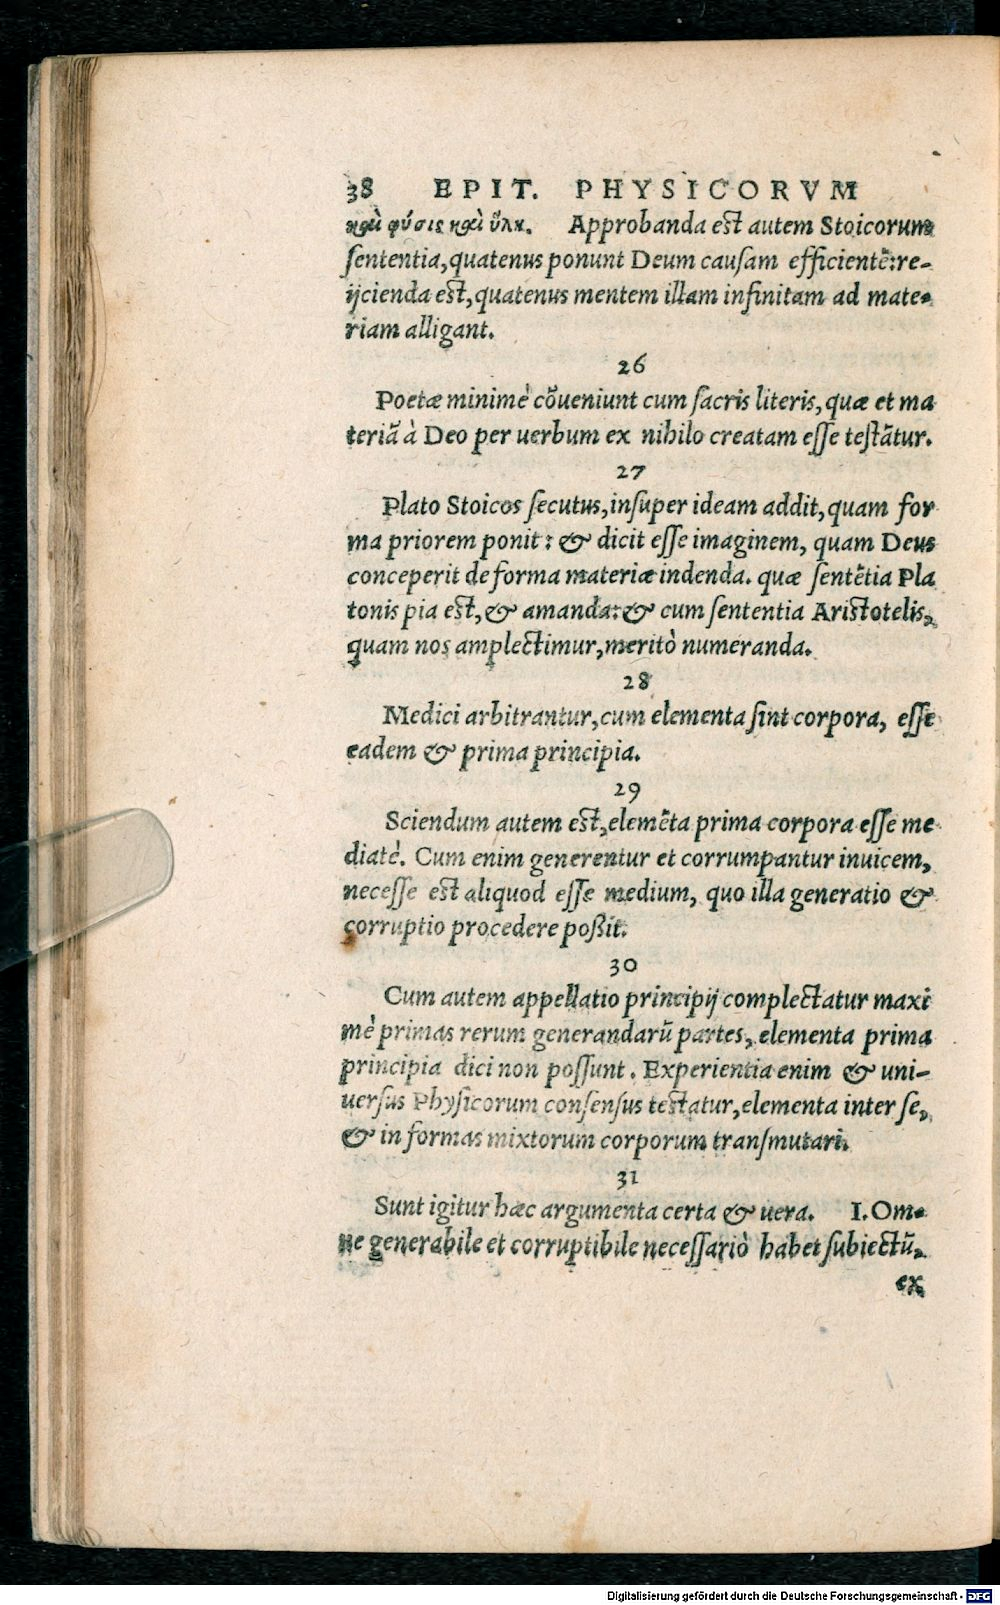 38 EPIT. PHYSICORVM
καὶ φύσις καὶ ὕλη. Approbanda est autem Stoicorum
sententia, quatenus ponunt Deum causam efficientẽ: re-
ijcienda est, quatenus mentem illam infinitam ad mate-
riam alligant.
26
Poetæ minimè cõueniunt cum sacris literis, quæ et ma
teriã à Deo per uerbum ex nihilo creatam esse testãtur.
27
Plato Stoicos secutus, insuper ideam addit, quam for
ma priorem ponit: & dicit esse imaginem, quam Deus
conceperit de forma materiæ indenda. quæ sentẽtia Pla
tonis pia est, & amanda: & cum sententia Aristotelis,
quam nos amplectimur, meritò numeranda.
28
Medici arbitrantur, cum elementa sint corpora, esse
eadem & prima principia.
29
Sciendum autem est, elemẽta prima corpora esse me
diatè. Cum enim generentur et corrumpantur inuicem,
necesse est aliquod esse medium, quo illa generatio &
corruptio procedere poßit.
30
Cum autem appellatio principij complectatur maxi
mè primas rerum generandarũ partes, elementa prima
principia dici non possunt. Experientia enim & uni-
uersus Physicorum consensus testatur, elementa inter se,
& in formas mixtorum corporum transmutari.
31
Sunt igitur hæc argumenta certa & uera. I. Om-
ne generabile et corruptibile necessariò habet subiectũ,
ex
Digitalisierung gefördert durch die Deutsche Forschungsgemeinschaft - DFG